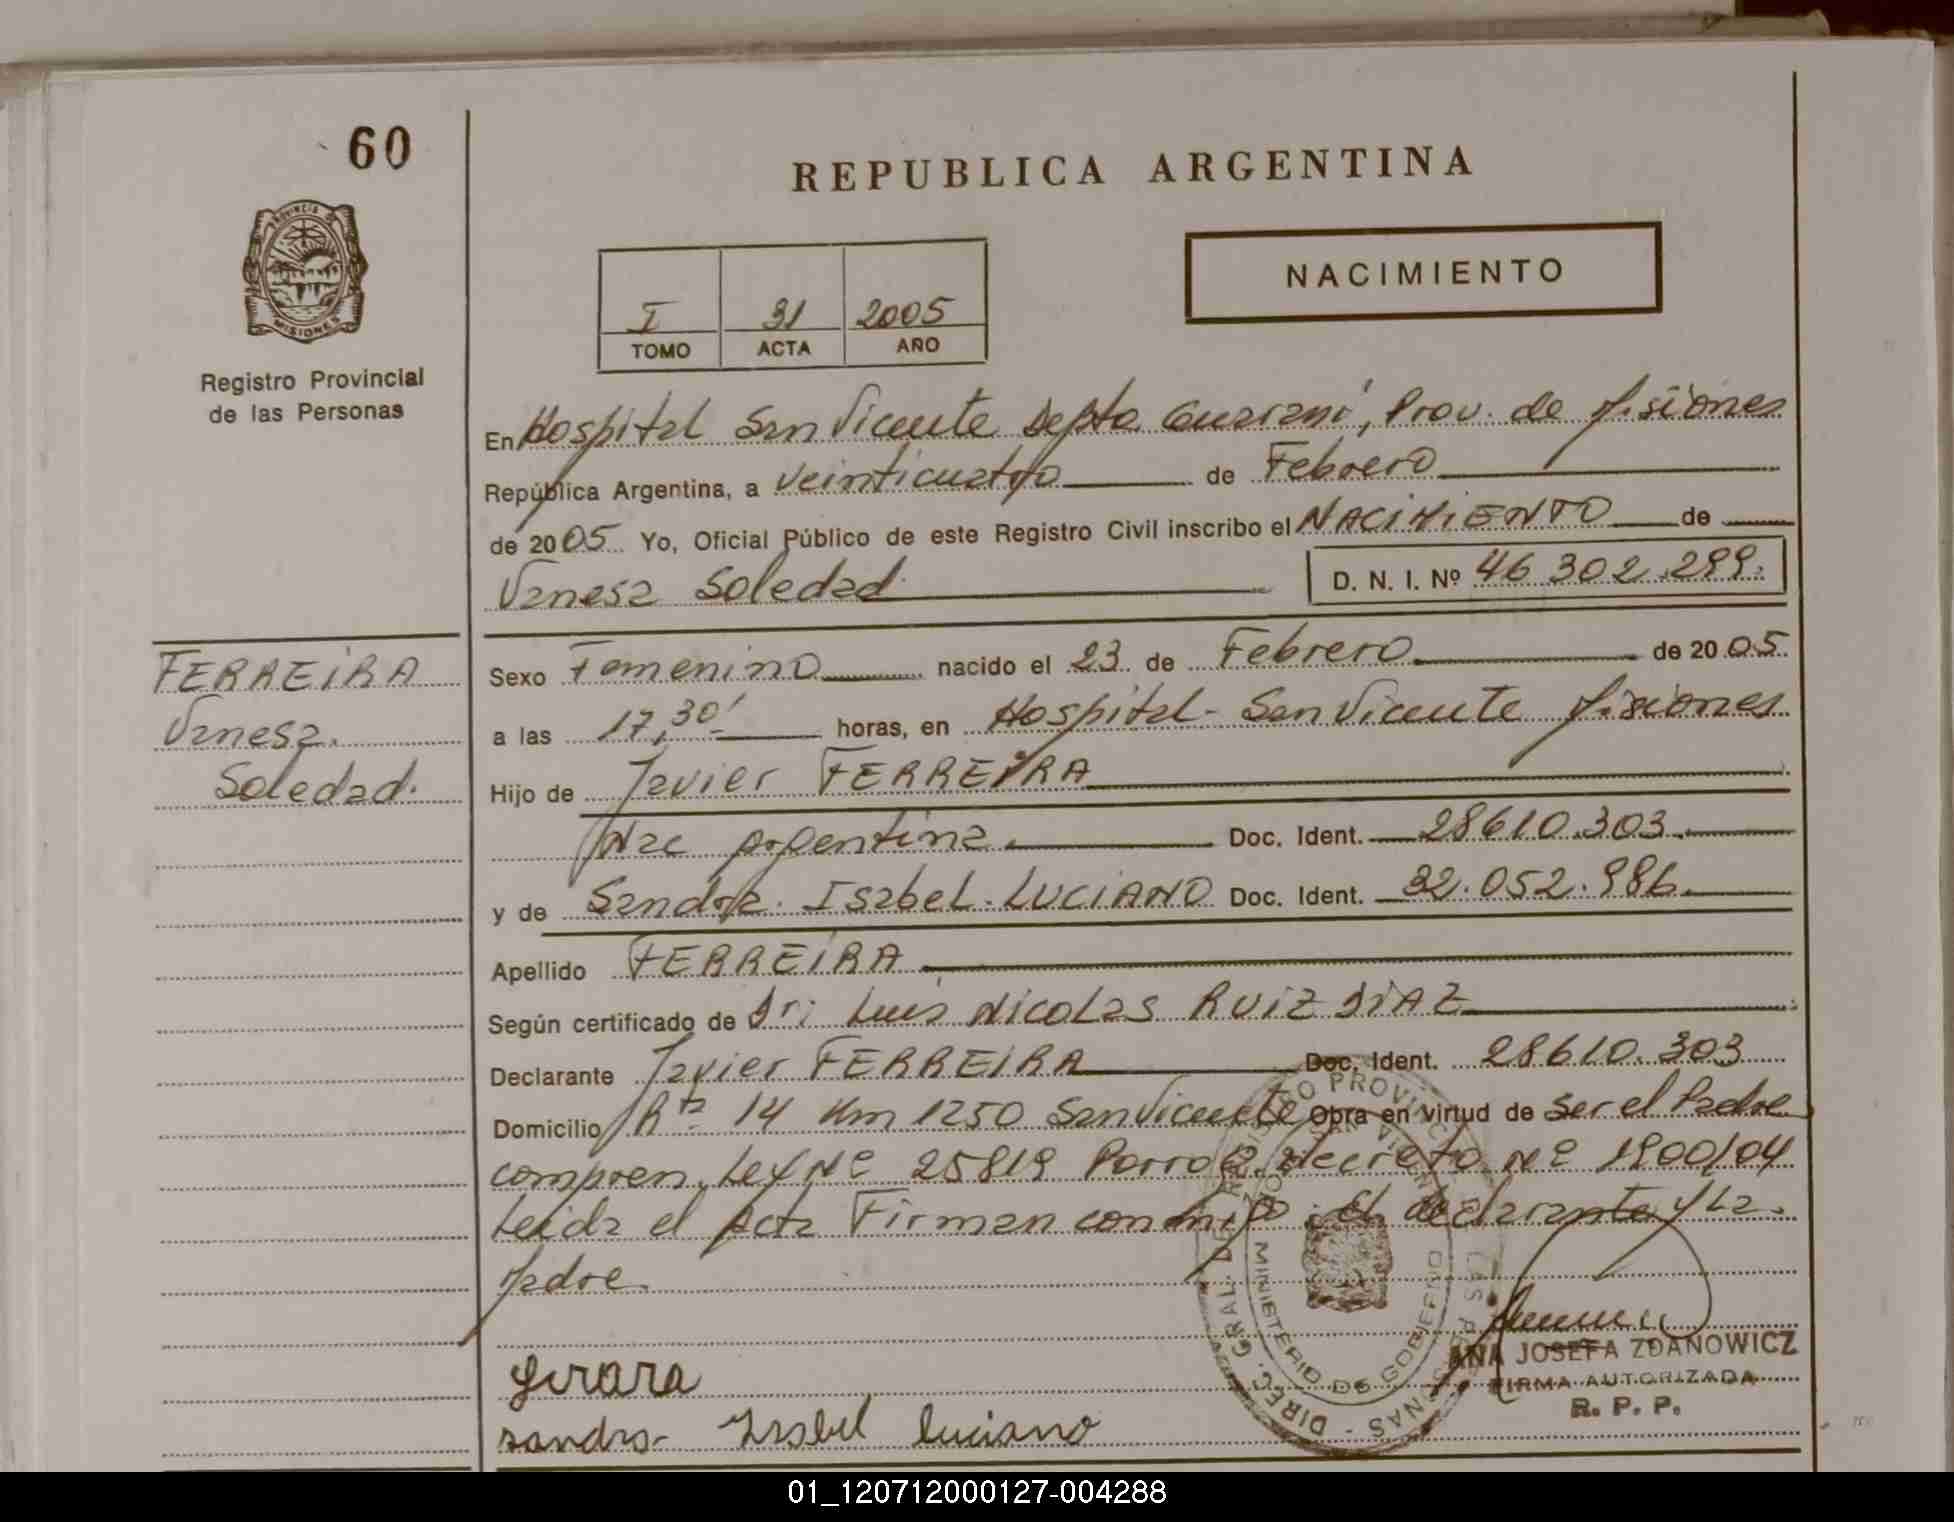 60
REPUBLICA ARGENTINA
PROVINCIA DE
MISIONES
Registro Provincial
de las Personas
I 31 2005
TOMO ACTA AÑO
NACIMIENTO
En Hospital San Vicente Depto Guarani, Prov. de Misiones
República Argentina, a veinticuatro de Febrero
de 2005 Yo, Oficial Público de este Registro Civil inscribo el NACIMIENTO de
Vanesa Soledad D. N. I. Nº 46 302.299.
FERREIRA
Vanesa.
Soledad.
Sexo Femenino nacido el 23 de Febrero de 2005.
a las 17,30' horas, en Hospital - San Vicente Misiones
Hijo de Javier FERREIRA
Nac Argentina. Doc. Ident. 28610.303.
y de Sandra. Isabel. LUCIANO Doc. Ident. 32.052.986.
Apellido FERREIRA
Según certificado de Dr; Luis Nicolas RUIZ DIAZ
Declarante Javier FERREIRA Doc. Ident. 28610.303
Domicilio Rta 14 Km 1250 San Vicente Obra en virtud de ser el Padre
compren. Ley Nº 25819 Decreto Nº 1900/04
Leida el Acta Firman conmigo el declarante y La.
Madre.
sandra Isabel luciano
DIREC. GRAL. DE REGISTRO PROVINCIAL DE LAS PERSONAS -
MINISTERIO DE GOBIERNO
SAN VICENTE
ANA JOSEFA ZDANOWICZ
FIRMA AUTORIZADA
R. P. P.
01_120712000127-004288